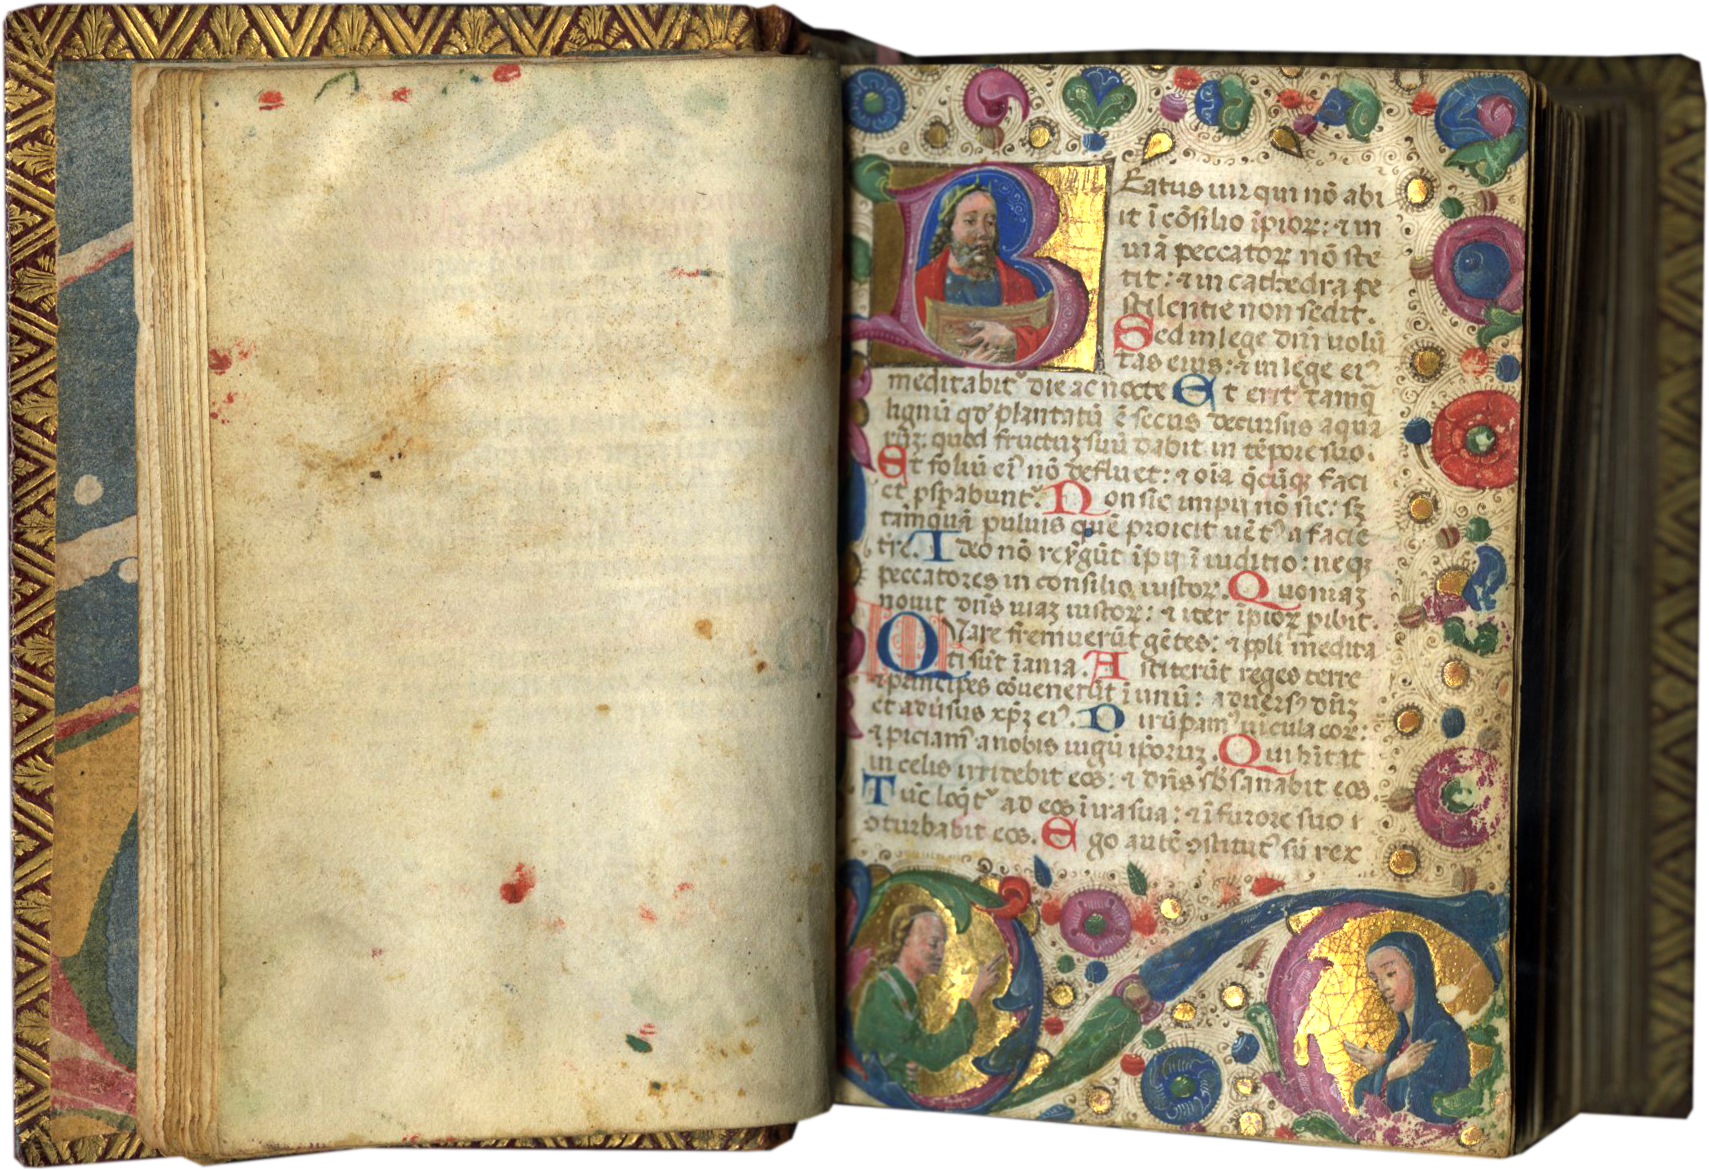 Eatus uir qui nō abi
it ī cōsilio īpioꝝ: ⁊ in
uiā peccatoꝝ nō ste
tit: ⁊ in cathedra pe
stilentie non sedit.
Sed in lege dn̄i uolū
tas eius: ⁊ in lege ei᷒
meditabit᷑ die ac nocte Et erit tamq̄
lignū qd̓ plantatū ē secus decursus aqua
rūꝫ: quod fructuꝫ suū dabit in tēpore suo.
Et foliū ei᷒ nō defluet: ⁊ oīa q̄cūqꝫ faci
et psꝑabunt᷑. Non sic impii nō sic: sꝫ
tāmquā puluis quē proicit uēt᷒ a facie
tr̄e. Ideo nō resḡūt īpii ī iuditio: neqꝫ
peccatores in consilio iustoꝝ. Quoniaꝫ
nouit dn̄s uiaꝫ iustoꝝ: ⁊ iter īpioꝝ ꝑibit.
QUare fremuerūt gētes: ⁊ ppl̄i medita
ti sūt īania. Astiterūt reges terre
⁊ principes cōuenerūt ī unū: aduers᷒ dn̄ꝫ
et adūsus xp̄ꝫ ei᷒. Dirūpam᷒ uīcula eoꝝ:
⁊ ꝓiciam᷒ a nobis iugū ip̄oruꝫ. Qui hītat
in celis irridebit eos: ⁊ dn̄s sb̄sanabit eos.
Tūc loq̄t᷑ ad eos ī ira sua: ⁊ ī furore suo
ꝯturbabit eos. Ego autē ꝯstitut᷒ sū rex